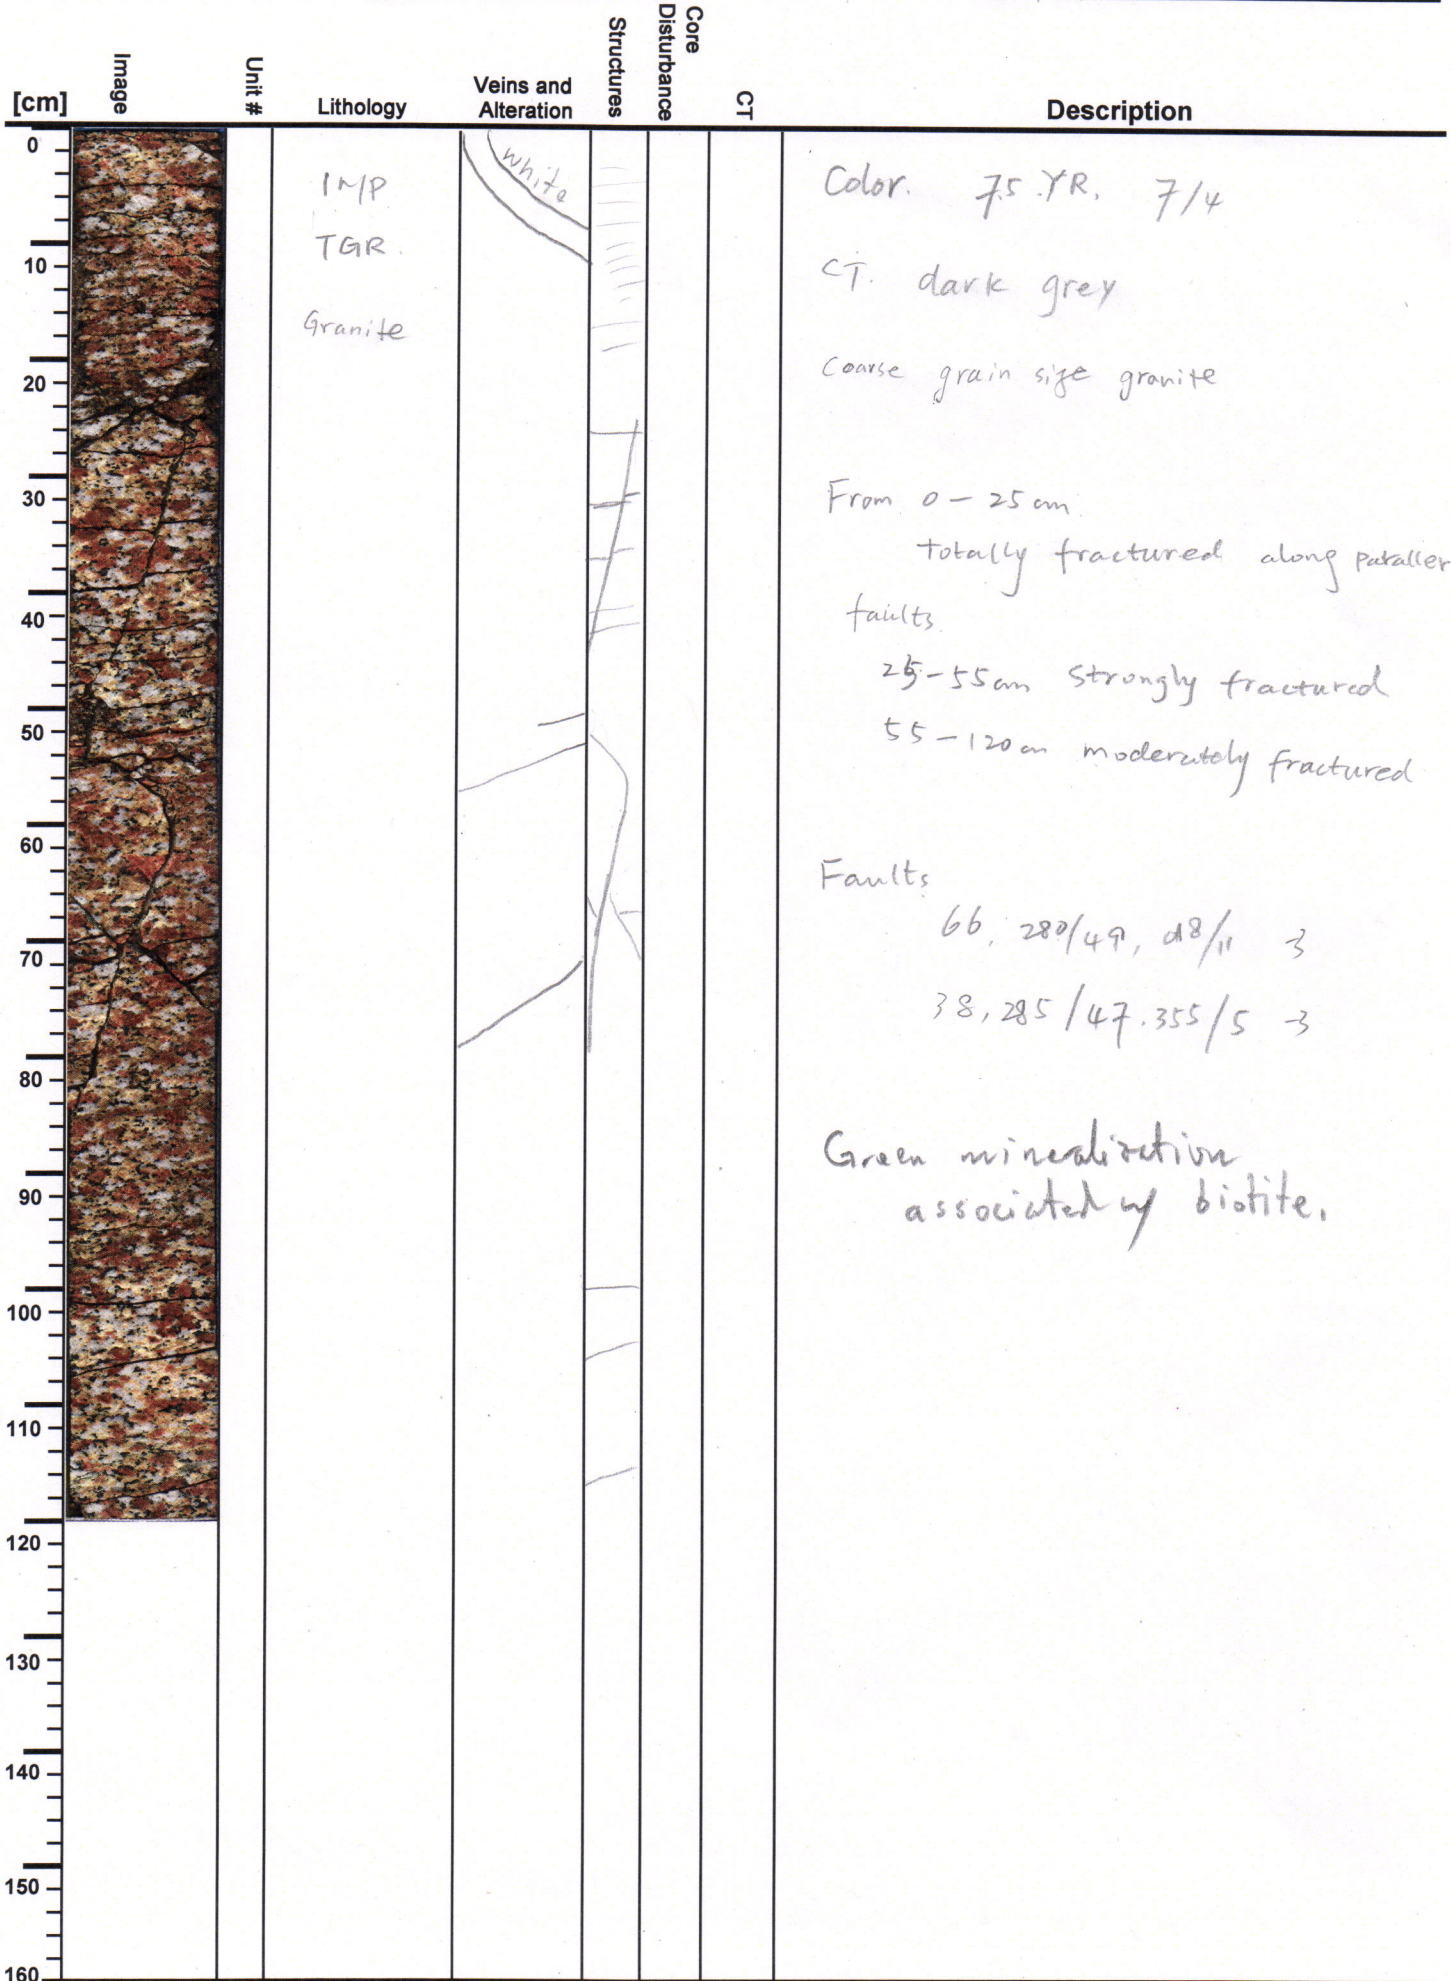 [cm]
Image
Unit #
Lithology
Veins and
Alteration
Structures
Core
Disturbance
CT
Description
0
10
20
30
40
50
60
70
80
90
100
110
120
130
140
150
160
IMP
TGR.
Granite
white
Color. 7.5 YR. 7/4
CT. dark grey
Coarse grain size granite
From 0 - 25 cm
totally fractured along paraller
faults
25-55cm Strongly fractured
55-120cm moderately fractured
Faults
66, 280/49, /11
38, 285/47. 355/5
Green mineralization
associated w/ biotite.